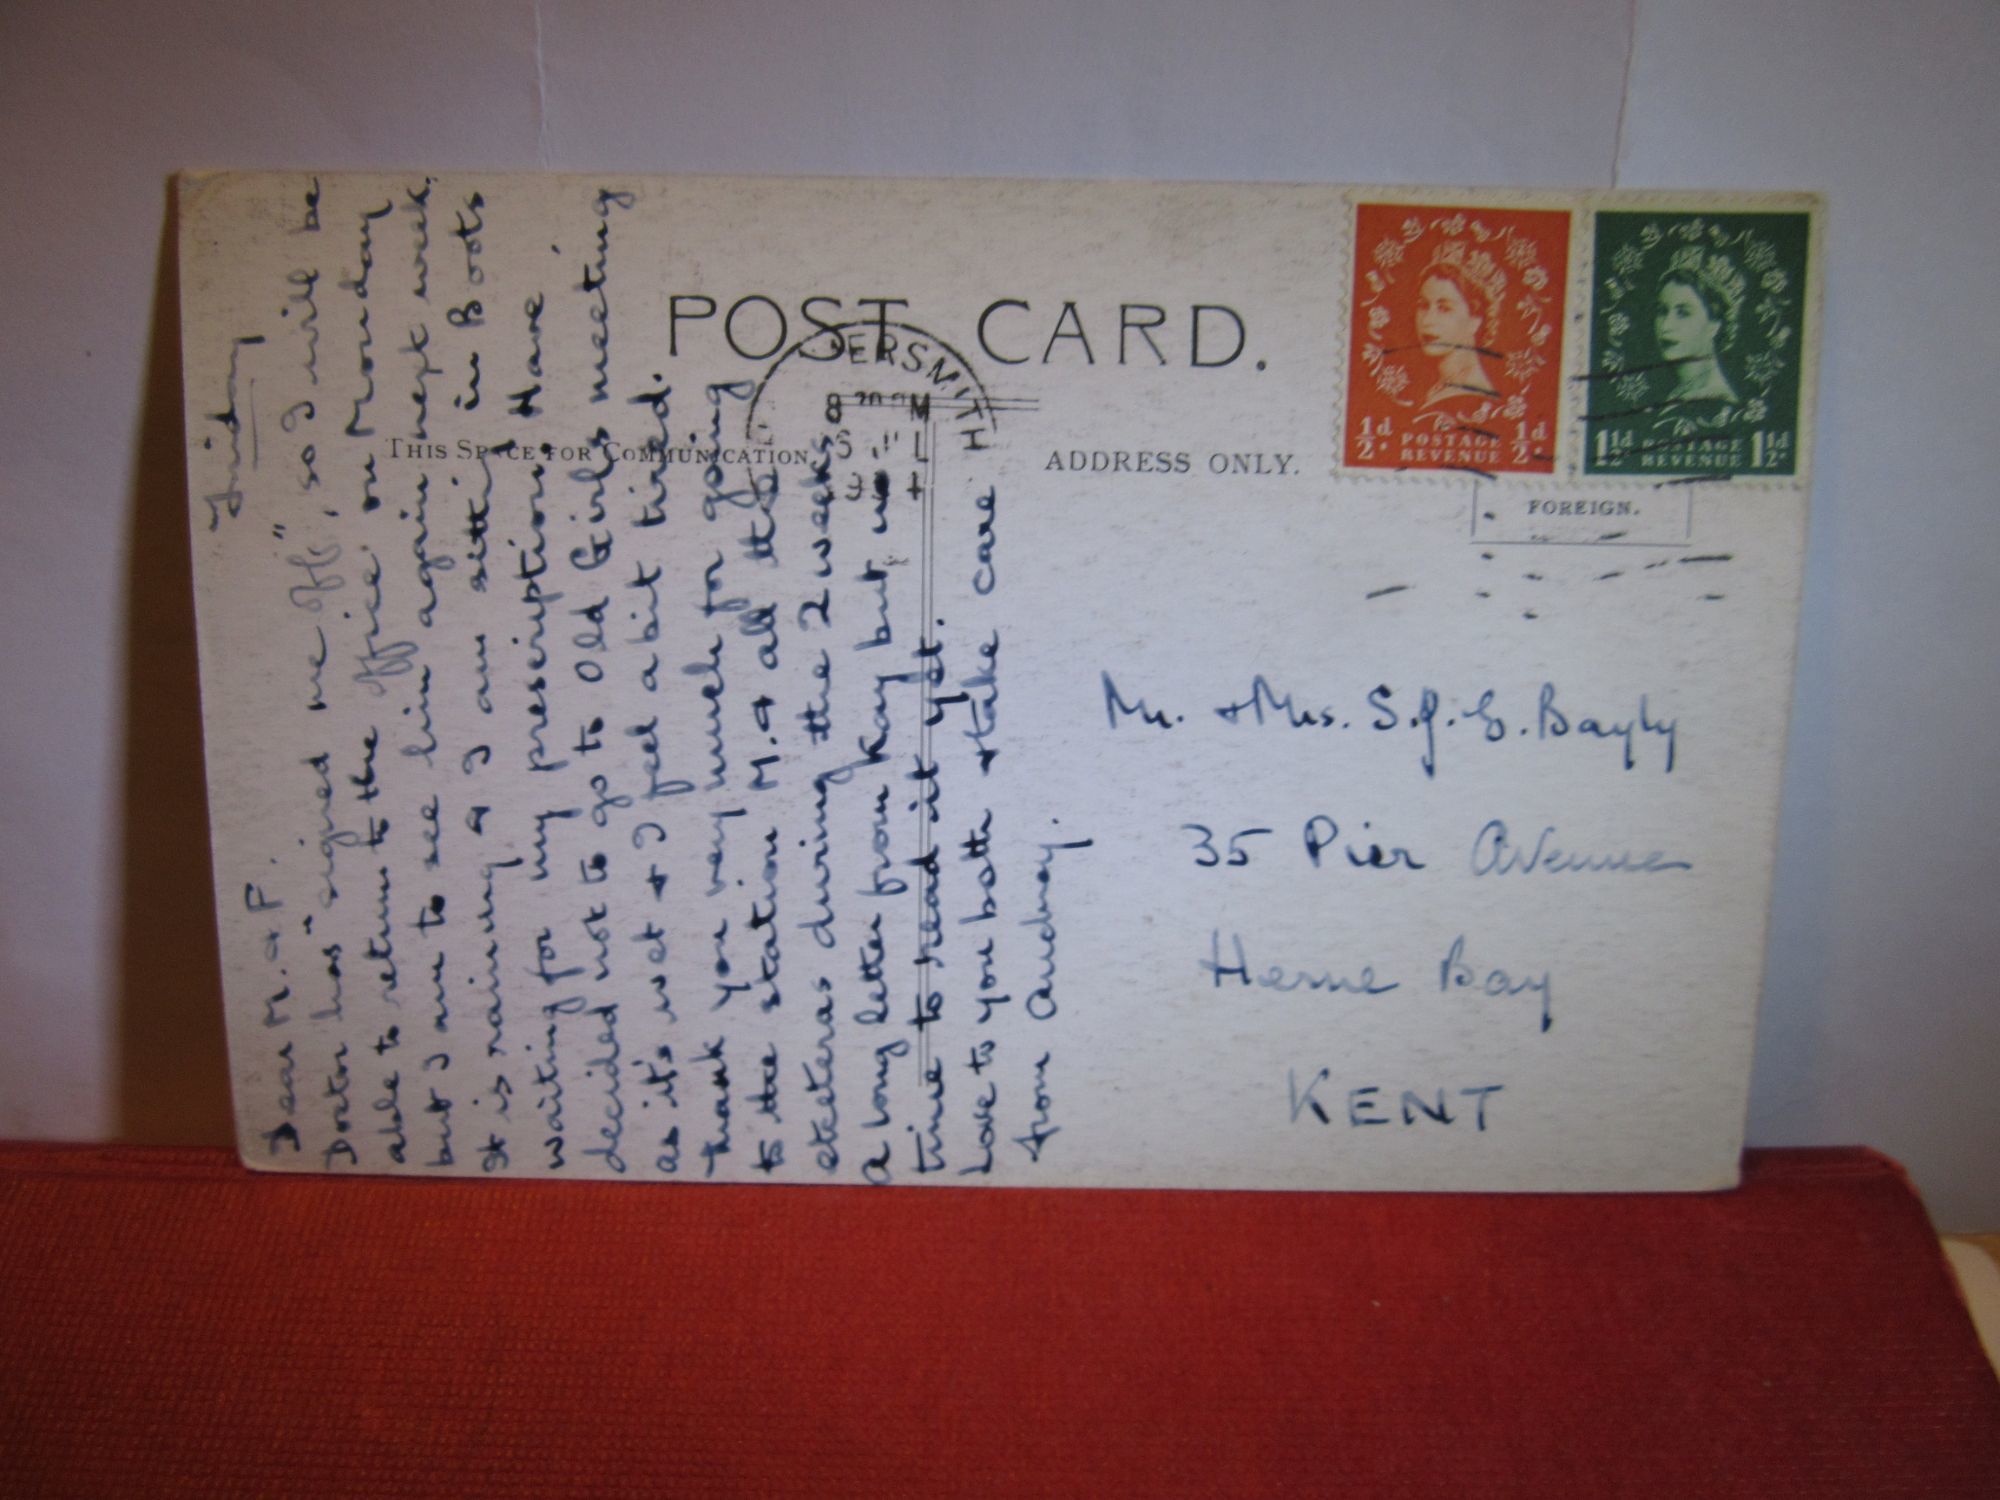 POST CARD.
THIS SPACE FOR COMMUNICATION.
ADDRESS ONLY.
½d ½d
POSTAGE
REVENUE
1½d 1½d
POSTAGE
REVENUE
FOREIGN.
ERSMITH
8
Friday
Dear M. & F.
Doctor has "signed me off", so I will be
able to return to the office on Monday
but I am to see him again next week.
It is raining & I am sitting in Boots
waiting for my prescription. Have
decided not to go to Old Girls meeting
as it's wet & I feel a bit tired.
Thank you very much for going
to the station M. & all the
eteteras during the 2 weeks
a long letter from Kay but no
time to read it yet.
Love to you both & take care
from Audrey.
Mr. & Mrs. S.J.G. Bayly
35 Pier Avenue
Herne Bay
KENT